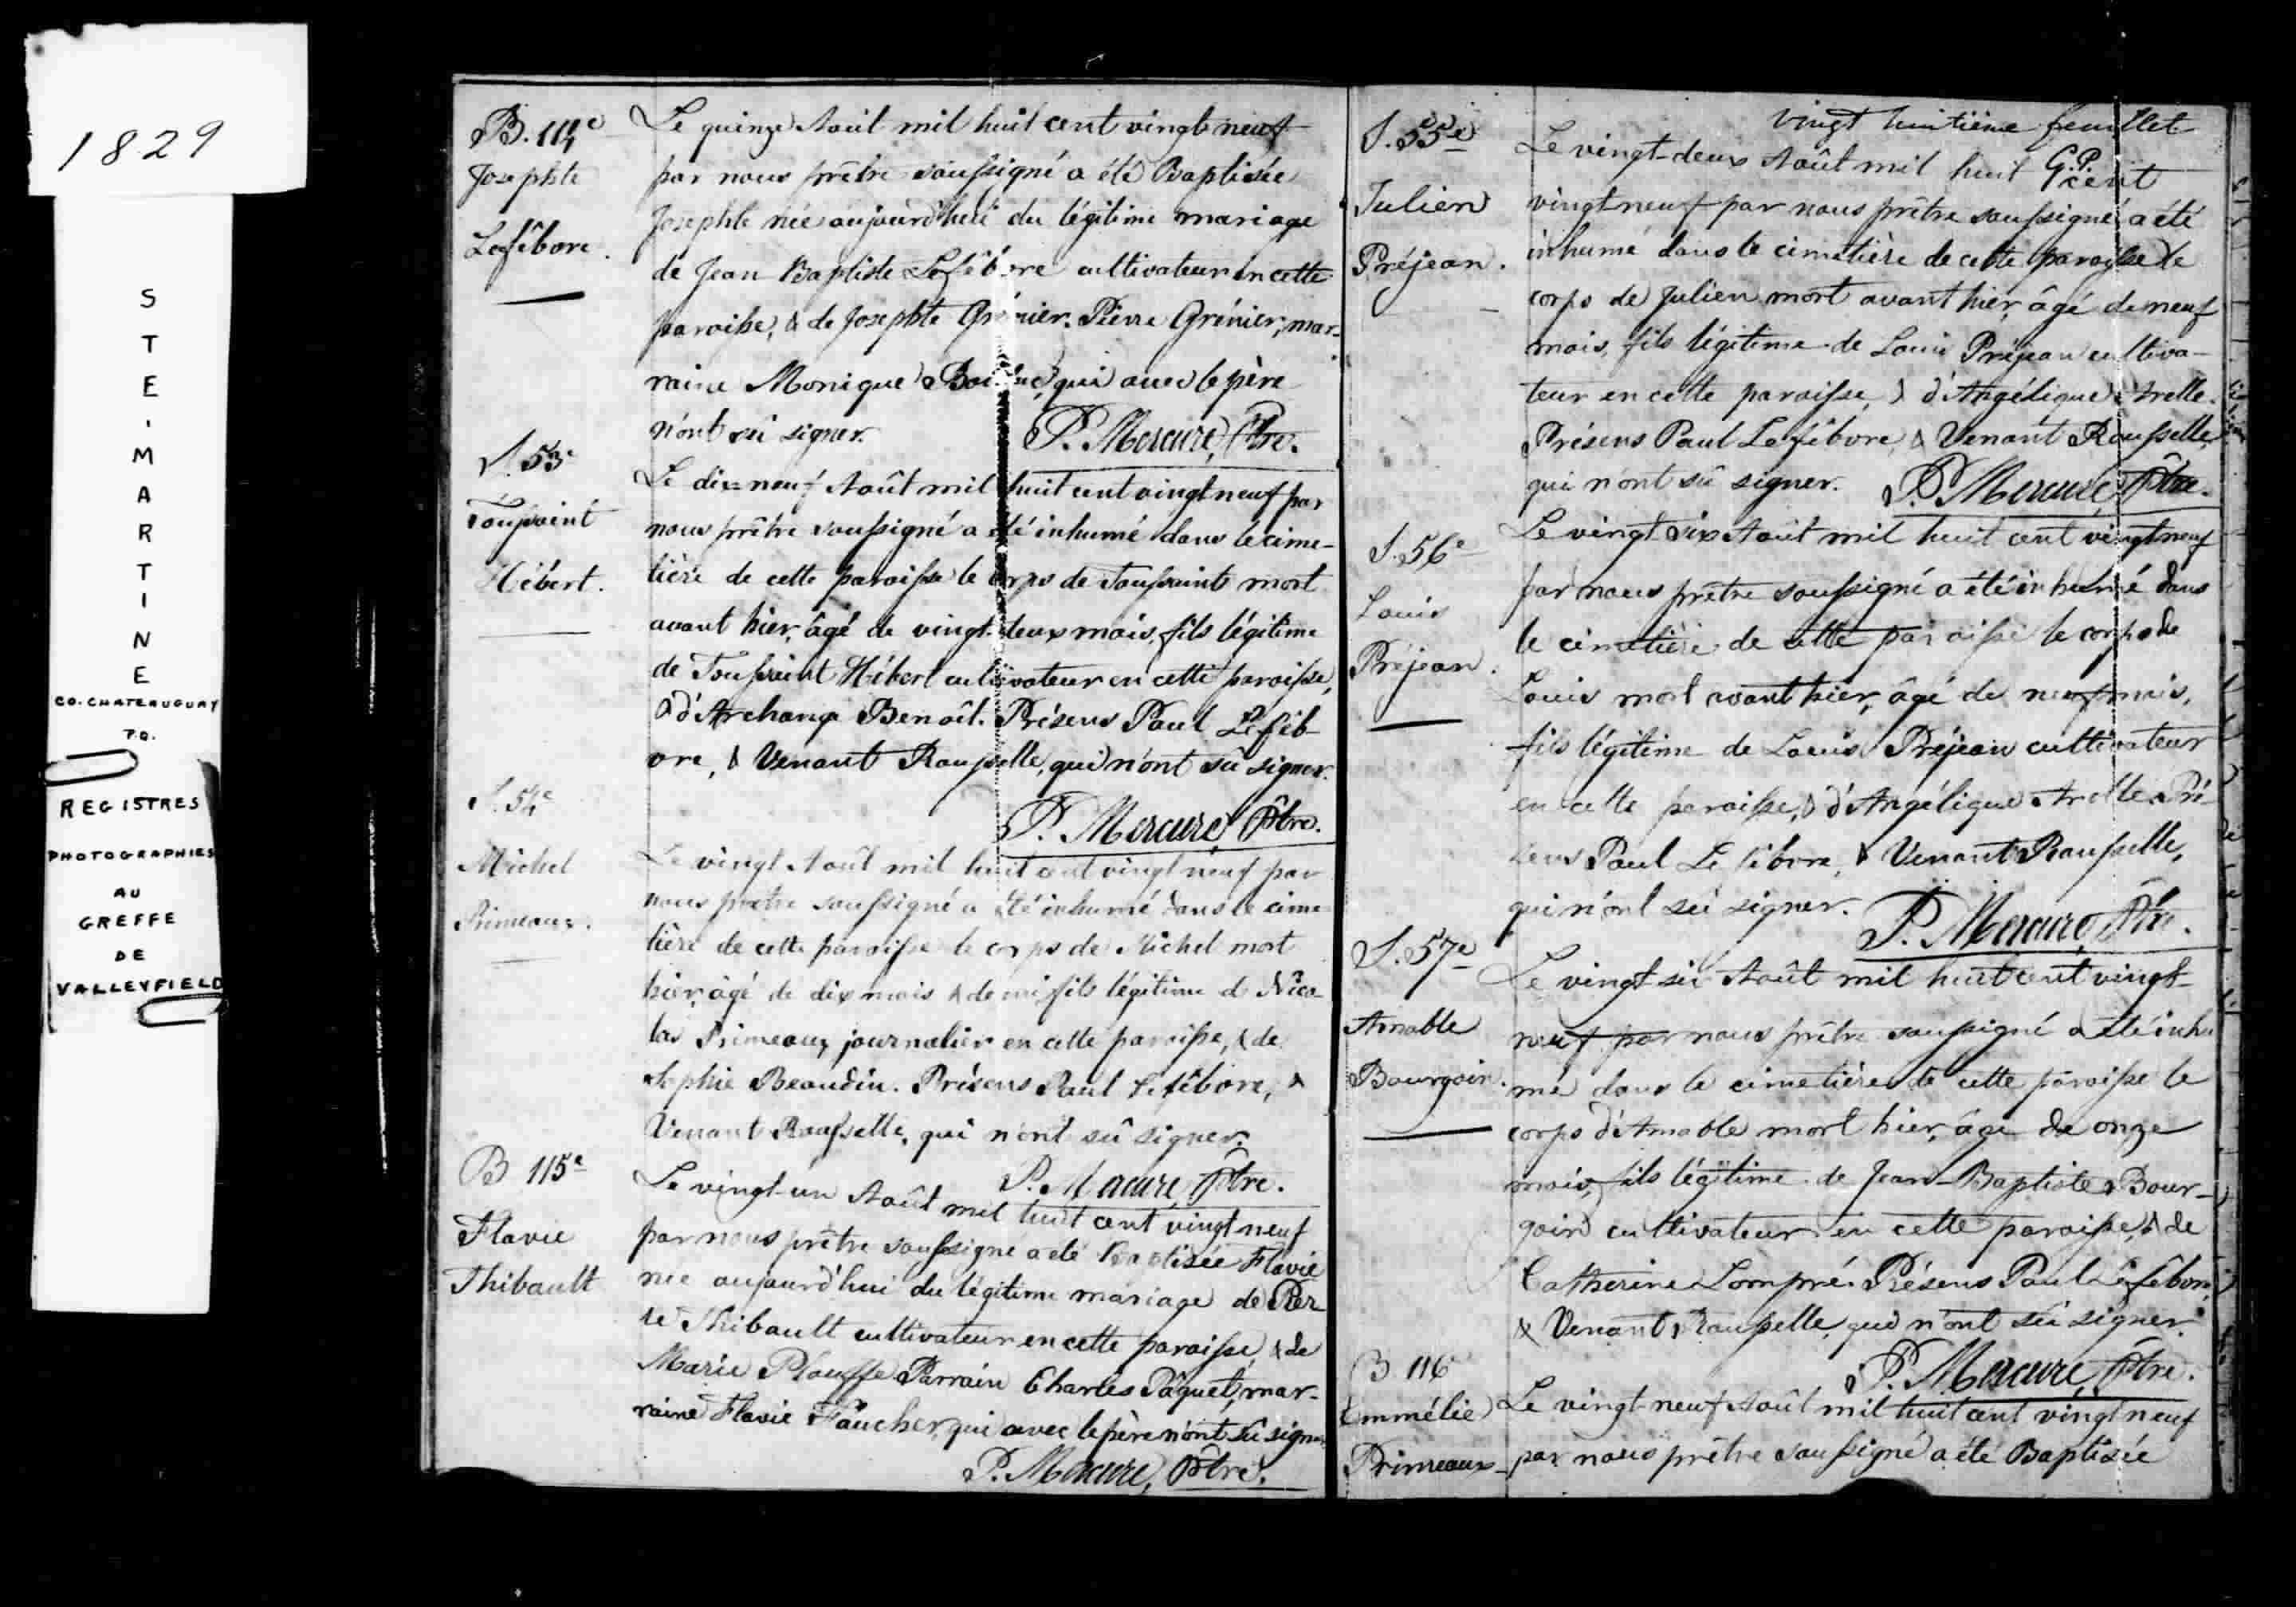 1829
STE. MARTINE
CO. CHATEAUGUAY
P.Q.
REGISTRES
PHOTOGRAPHIES
AU
GREFFE
DE
VALLEYFIELD
B. 114e
Josephte
Lefêbvre.
Le quinze Août mil huit cent vingt neuf
par nous prêtre soussigné a été Baptisée
Josephte née aujourd'hui du légitime mariage
de Jean Baptiste Lefêbvre cultivateur en cette
paroisse, & de Josephte Grénier. Pierre Grénier, mar-
raine Monique qui avec le père
n'ont sû signer.
P. Mercure, Ptre.
S. 53e
Toussaint
Hébert.
Le dix-neuf Août mil huit cent vingt neuf par
nous prêtre soussigné a été inhumé dans le cime-
tière de cette paroisse le corps de Toussaint mort
avant hier, âgé de vingt-deux mois, fils légitime
de Toussaint Hébert cultivateur en cette paroisse,
& d'Archange Benoît. Présens Paul Lefêb-
vre, & Venant Rousselle, qui n'ont sû signer.
P. Mercure, Ptre.
S. 54e
Michel
Primeaux.
Le vingt Août mil huit cent vingt neuf par
nous prêtre soussigné a été inhumé dans le cime
tière de cette paroisse le corps de Michel mort
hier, âgé de dix mois & demi, fils légitime de Nico-
las Primeaux journalier en cette paroisse, & de
Sophie Beaudin. Présens Paul Lefêbvre, &
Venant Rousselle, qui n'ont sû signer.
P. Mercure, Ptre.
B 115e
Flavie
Thibault
Le vingt-un Août mil huit cent vingt neuf
par nous prêtre soussigné a été Baptisée Flavie
née aujourd'hui du légitime mariage de Pier
re Thibault cultivateur en cette paroisse, & de
Marie Plouffe. Parrain Charles Pâquet, mar-
raine Flavie Faucher, qui avec le père n'ont sû signer
P. Mercure, Ptre.
vingt huitième feuillet
G.P.
S. 55e
Julien
Préjean.
Le vingt-deux Août mil huit cent
vingt neuf par nous prêtre soussigné a été
inhumé dans le cimetière de cette paroisse le
corps de Julien mort avant hier, âgé de neuf
mois, fils légitime de Louis Préjean cultiva-
teur en cette paroisse, & d'Angélique Arelle.
Présens Paul Lefêbvre, & Venant Rousselle,
qui n'ont sû signer. P. Mercure, Ptre.
S. 56e
Louis
Préjean.
Le vingt six Août mil huit cent vingt neuf
par nous prêtre soussigné a été inhumé dans
le cimetière de cette paroisse le corps de
Louis mort avant hier, âgé de neuf mois,
fils légitime de Louis Préjean cultivateur
en cette paroisse, & d'Angélique Arelle. Pré
sens Paul Lefêbvre, & Venant Rousselle,
qui n'ont sû signer. P. Mercure, Ptre.
S. 57e
Amable
Bourgoin.
Le vingt-six Août mil huit cent vingt-
neuf par nous prêtre soussigné a été inhu
mé dans le cimetière de cette paroisse le
corps d'Amable mort hier, âgé de onze
mois, fils légitime de Jean-Baptiste Bour-
goin cultivateur en cette paroisse, & de
Catherine Lompré. Présens Paul Lefêbvre,
& Venant Rousselle, qui n'ont sû signer.
P. Mercure, Ptre.
B 116e
Emmélie
Primeaux
Le vingt-neuf Août mil huit cent vingt neuf
par nous prêtre soussigné a été Baptisée